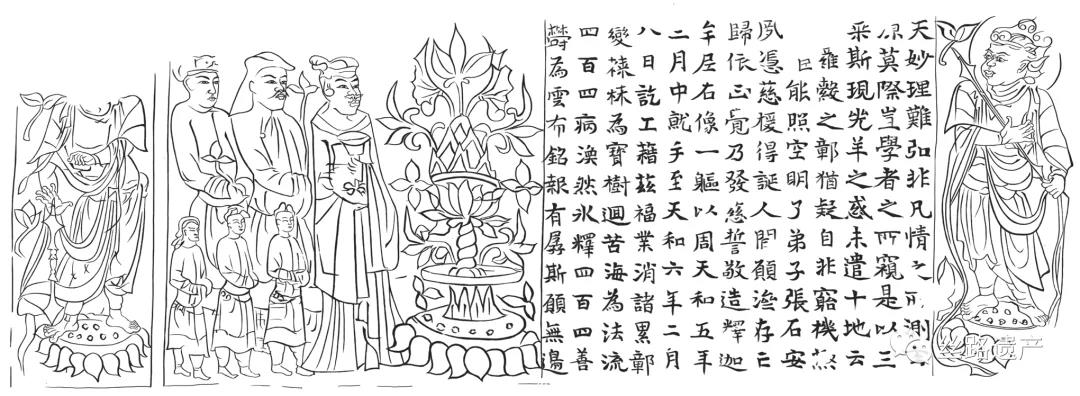 天妙理難弘非凡情之所測
莫際豈學者之所窺是以三
乘斯現光羊之惑未遣十地云
雍鷇之鄣猶疑自非窮機
叵能照空明了弟子張石安
夙憑慈援得誕人間願濟存亡
歸依正覺乃發慈誓敬造釋迦
牟尼石像一軀以周天和五年
二月中就手至天和六年二月
八日訖工藉茲福業消諸累鄣
變林為寶樹迴苦海為法流
四百四病渙然氷釋四百四善
欝為雲布銘報有孱斯願無邊
丝路遗产